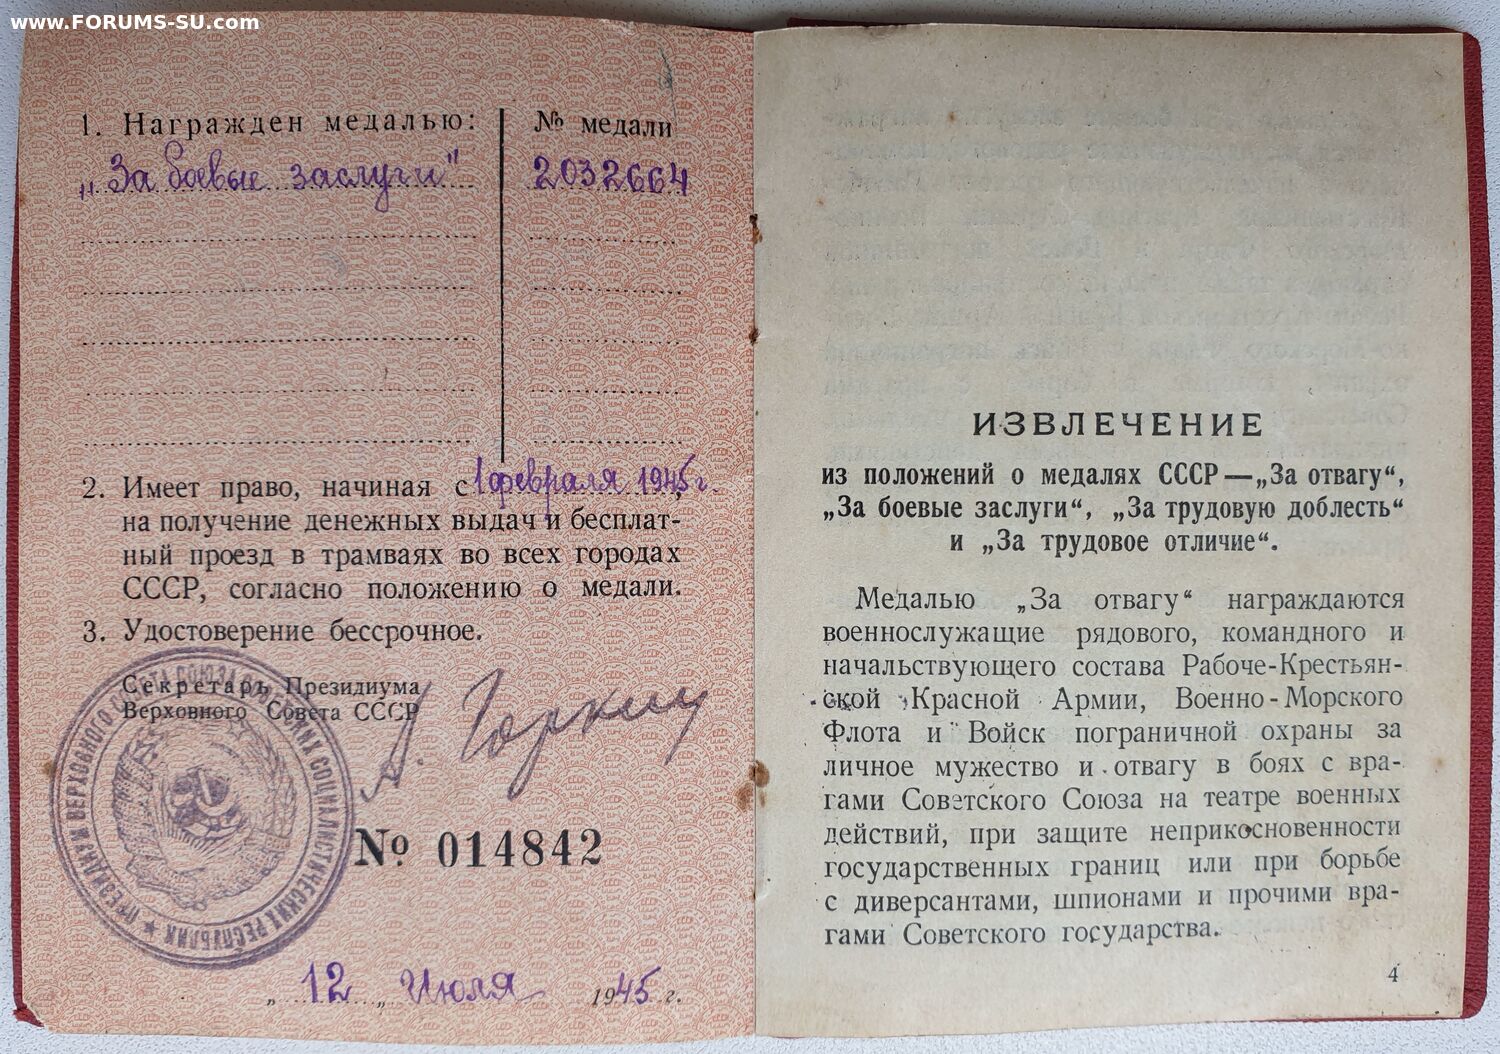 www.FORUMS-SU.com
1. Награжден медалью:
„За боевые заслуги"
№ медали
2032664
2. Имеет право, начиная с 1 февраля 1945 г.,
на получение денежных выдач и бесплат-
ный проезд в трамваях во всех городах
СССР, согласно положению о медали.
3. Удостоверение бессрочное.
Секретарь Президиума
Верховного Совета СССР
А. Горкин
ПРЕЗИДИУМ ВЕРХОВНОГО СОВЕТА СОЮЗА СОВЕТСКИХ СОЦИАЛИСТИЧЕСКИХ РЕСПУБЛИК
№ 014842
„ 12 „ Июля 1945 г.
ИЗВЛЕЧЕНИЕ
из положений о медалях СССР — „За отвагу“,
„За боевые заслуги“, „За трудовую доблесть“
и „За трудовое отличие“.
Медалью „За отвагу“ награждаются
военнослужащие рядового, командного и
начальствующего состава Рабоче-Крестьян-
ской Красной Армии, Военно-Морского
Флота и Войск пограничной охраны за
личное мужество и отвагу в боях с вра-
гами Советского Союза на театре военных
действий, при защите неприкосновенности
государственных границ или при борьбе
с диверсантами, шпионами и прочими вра-
гами Советского государства.
4